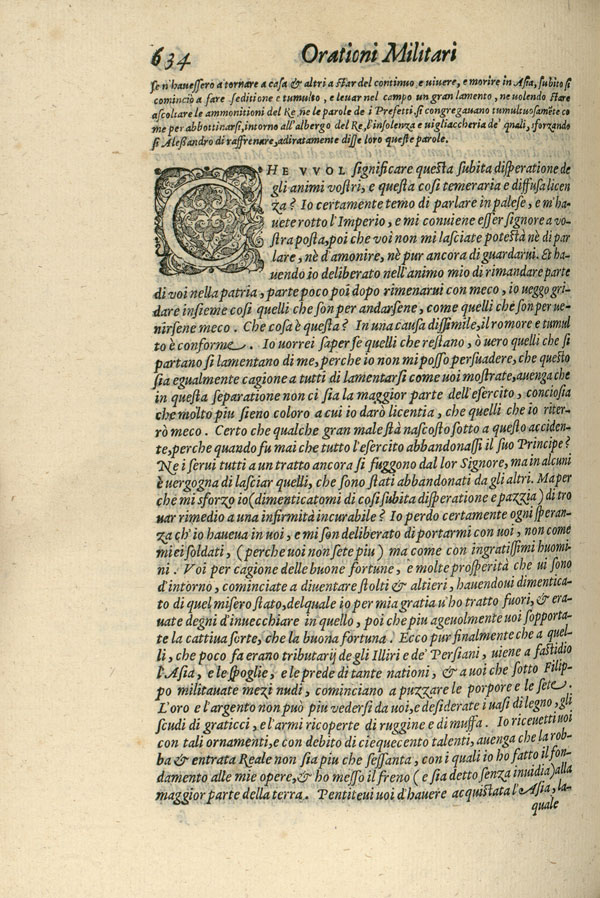 634 Orationi Militari
se n'hauessero a tornare a casa & altri a star del continuo, e uiuere, e morire in Asia, subito si
comincio a fare seditione e tumulto, e leuar nel campo un gran lamento, ne uolendo stare
ascoltare le ammonitioni del Re, ne le parole de i Prefetti, si congregauano tumultuosamẽte co
me per abbottinarsi, intorno all'albergo del Re, l'insolenza e uigliaccheria de' quali, sforzando
si Alessandro di raffrenare, adiratamente disse loro queste parole.
CHE VVOL significare questa subita disperatione de
gli animi vostri, e questa cosi temeraria e diffusa licen
za? Io certamente temo di parlare in palese, e m'ha
uete rotto l'Imperio, e mi conuiene esser signore a vo-
stra posta, poi che voi non mi lasciate potestà nè di par
lare, nè d'amonire, nè pur ancora di guardarui. Et ha-
uendo io deliberato nell'animo mio di rimandare parte
di voi nella patria, parte poco poi dopo rimenarui con meco, io ueggo gri-
dare insieme cosi quelli che son per andarsene, come quelli che son per ue-
nirsene meco. Che cosa è questa? In una causa dissimile, il romore e tumul
to è conforme. Io uorrei saper se quelli che restano, ò uero quelli che si
partano si lamentano di me, perche io non mi posso persuadere, che questo
sia egualmente cagione a tutti di lamentarsi come uoi mostrate, auenga che
in questa separatione non ci sia la maggior parte dell'esercito, conciosia
che molto piu sieno coloro a cui io darò licentia, che quelli che io riter-
rò meco. Certo che qualche gran male stà nascosto sotto a questo acciden-
te, perche quando fu mai che tutto l'esercito abbandonassi il suo Principe?
Ne i serui tutti a un tratto ancora si fuggono dal lor Signore, ma in alcuni
è uergogna di lasciar quelli, che sono stati abbandonati da gli altri. Ma per
che mi sforzo io (dimenticatomi di cosi subita disperatione e pazzia) di tro
uar rimedio a una infirmità incurabile? Io perdo certamente ogni speran-
za ch'io haueua in uoi, e mi son deliberato di portarmi con uoi, non come
miei soldati, (perche uoi non sete piu) ma come con ingratissimi huomi-
ni. Voi per cagione delle buone fortune, e molte prosperità che ui sono
d'intorno, cominciate a diuentare stolti & altieri, hauendoui dimentica-
to di quel misero stato, del quale io per mia gratia u'ho tratto fuori, & era-
uate degni d'inuecchiare in quello, poi che piu ageuolmente uoi sopporta-
te la cattiua sorte, che la buona fortuna. Ecco pur finalmente che a quel-
li, che poco fa erano tributarij de gli Illiri e de' Persiani, uiene a fastidio
l'Asia, e le spoglie, e le prede di tante nationi, & a uoi che sotto Filip-
po militauate mezi nudi, cominciano a puzzare le porpore e le sete.
L'oro e l'argento non può piu vedersi da uoi, e desiderate i uasi di legno, gli
scudi di graticci, e l'armi ricoperte di ruggine e di muffa. Io riceuetti uoi
con tali ornamenti, e con debito di ciequecento talenti, auenga che la rob-
ba & entrata Reale non sia piu che sessanta, con i quali io ho fatto il fon-
damento alle mie opere, & ho messo il freno (e sia detto senza inuidia) alla
maggior parte della terra. Pentiteui uoi d'hauere acquistata l'Asia, la-
quale